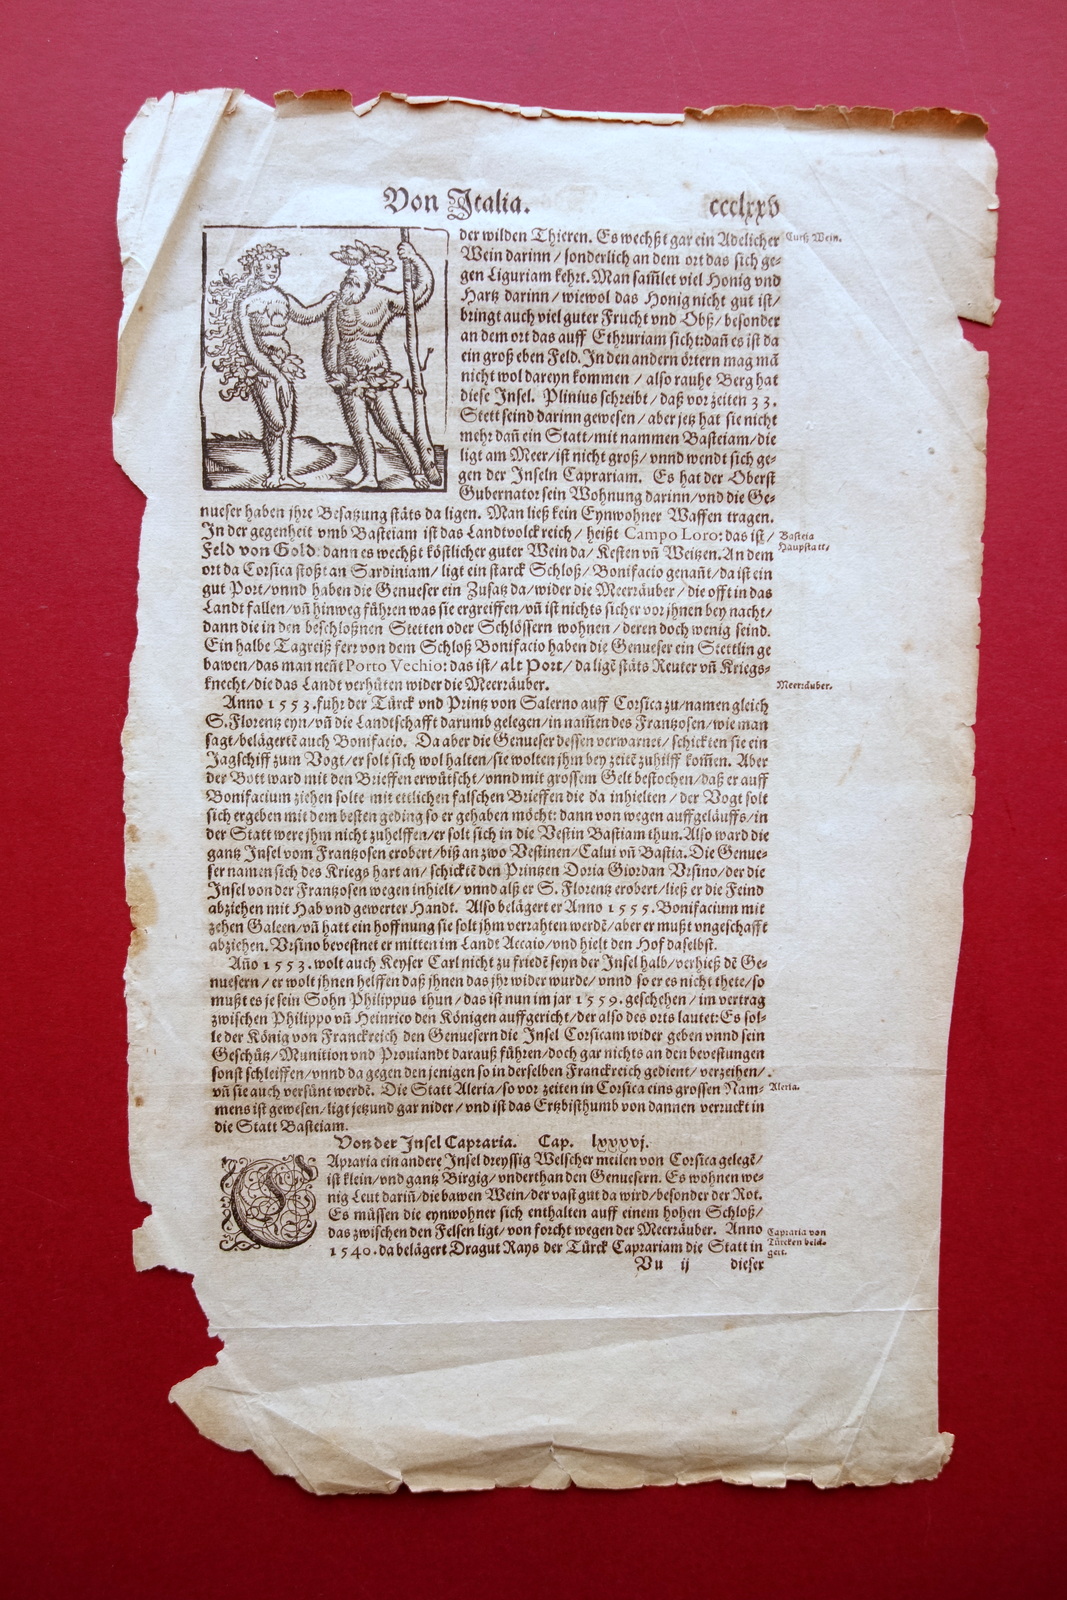 Von Italia. ccclxxv
der wilden Thieren. Es wechßt gar ein Adelicher
Curß Wein.
Wein darinn / sonderlich an dem ort das sich ge-
gen Liguriam kehrt. Man sam̃let viel Honig vnd
Hartz darinn / wiewol das Honig nicht gut ist /
bringt auch viel guter Frucht vnd Obß / besonder
an dem ort das auff Ethruriam sicht: dañ es ist da
ein groß eben Feld. In den andern örtern mag mã
nicht wol dareyn kommen / also rauhe Berg hat
diese Insel. Plinius schreibt / daß vor zeiten 33.
Stett seind darinn gewesen / aber jetz hat sie nicht
mehr dañ ein Statt / mit nammen Basteiam / die
ligt am Meer / ist nicht groß / vnnd wendt sich ge-
gen der Inseln Caprariam. Es hat der Oberst
Gubernator sein Wohnung darinn / vnd die Ge-
nueser haben jhre Besatzung stäts da ligen. Man ließ kein Eynwohner Waffen tragen.
In der gegenheit vmb Basteiam ist das Landtvolck reich / heißt Campo Loro: das ist /
Basteia
Hauptstatt.
Feld von Gold: dann es wechßt köstlicher guter Wein da / Kesten vñ Weitzen. An dem
ort da Corsica stoßt an Sardiniam / ligt ein starck Schloß / Bonifacio genañt / da ist ein
gut Port / vnnd haben die Genueser ein Zusatz da / wider die Meerräuber / die offt in das
Landt fallen / vñ hinweg führen was sie ergreiffen / vñ ist nichts sicher vor jhnen bey nacht /
dann die in den beschloßnen Stetten oder Schlössern wohnen / deren doch wenig seind.
Ein halbe Tagreiß ferr von dem Schloß Bonifacio haben die Genueser ein Stettlin ge
bawen / das man neñt Porto Vechio: das ist / alt Port / da ligẽ stäts Reuter vñ Kriegs-
knecht / die das Landt verhüten wider die Meerräuber.
Meerräuber.
Anno 1553. fuhr der Türck vnd Printz von Salerno auff Corsica zu / namen gleich
S. Florentz eyn / vñ die Landtschafft darumb gelegen / in nam̃en des Frantzosen / wie man
sagt / belägertẽ auch Bonifacio. Da aber die Genueser dessen verwarnet / schickten sie ein
Jagschiff zum Vogt / er solt sich wol halten / sie wolten jhm bey zeitẽ zuhilff kom̃en. Aber
der Bott ward mit den Brieffen erwütscht / vnnd mit grossem Gelt bestochen / daß er auff
Bonifacium ziehen solte mit ettlichen falschen Brieffen die da inhielten / der Vogt solt
sich ergeben mit dem besten geding so er gehaben möcht: dann von wegen auffgeläuffs / in
der Statt were jhm nicht zuhelffen / er solt sich in die Vestin Bastiam thun. Also ward die
gantz Insel vom Frantzosen erobert / biß an zwo Vestinen / Calui vñ Bastia. Die Genue-
ser namen sich des Kriegs hart an / schicktẽ den Printzen Doria Giordan Vrsino / der die
Insel von der Frantzosen wegen inhielt / vnnd alß er S. Florentz erobert / ließ er die Feind
abziehen mit Hab vnd gewerter Handt. Also belägert er Anno 1555. Bonifacium mit
zehen Galeen / vñ hatt ein hoffnung sie solt jhm verrahten werdẽ / aber er mußt vngeschafft
abziehen. Vrsino bevestnet er mitten im Landt Accaio / vnd hielt den Hof daselbst.
Año 1553. wolt auch Keyser Carl nicht zu friedẽ seyn der Insel halb / verhieß dẽ Ge-
nuesern / er wolt jhnen helffen daß jhnen das jhr wider wurde / vnnd so er es nicht thete / so
mußt es je sein Sohn Philippus thun / das ist nun im jar 1559. geschehen / im vertrag
zwischen Philippo vñ Heinrico den Königen auffgericht / der also des orts lautet: Es sol-
le der König von Franckreich den Genuesern die Insel Corsicam wider geben vnnd sein
Geschütz / Munition vnd Prouiandt darauß führen / doch gar nichts an den bevestungen
sonst schleiffen / vnnd da gegen den jenigen so in derselben Franckreich gedient / verzeihen /
vñ sie auch versünt werdẽ. Die Statt Aleria / so vor zeiten in Corsica eins grossen Nam-
Aleria.
mens ist gewesen / ligt jetzund gar nider / vnd ist das Ertzbisthumb von dannen verruckt in
die Statt Basteiam.
Von der Insel Capraria. Cap. lxxxvj.
CApraria ein andere Insel dreyssig Welscher meilen von Corsica gelegẽ /
ist klein / vnd gantz Birgig / vnder than den Genuesern. Es wohnen we-
nig Leut dariñ / die bawen Wein / der vast gut da wird / besonder der Rot.
Es müssen die eynwohner sich enthalten auff einem hohen Schloß /
das zwischen den Felsen ligt / von forcht wegen der Meerräuber. Anno
1540. da belägert Dragut Rays der Türck Caprariam die Statt in
Capraria von
Türcken belä-
gert.
Vu ij dieser